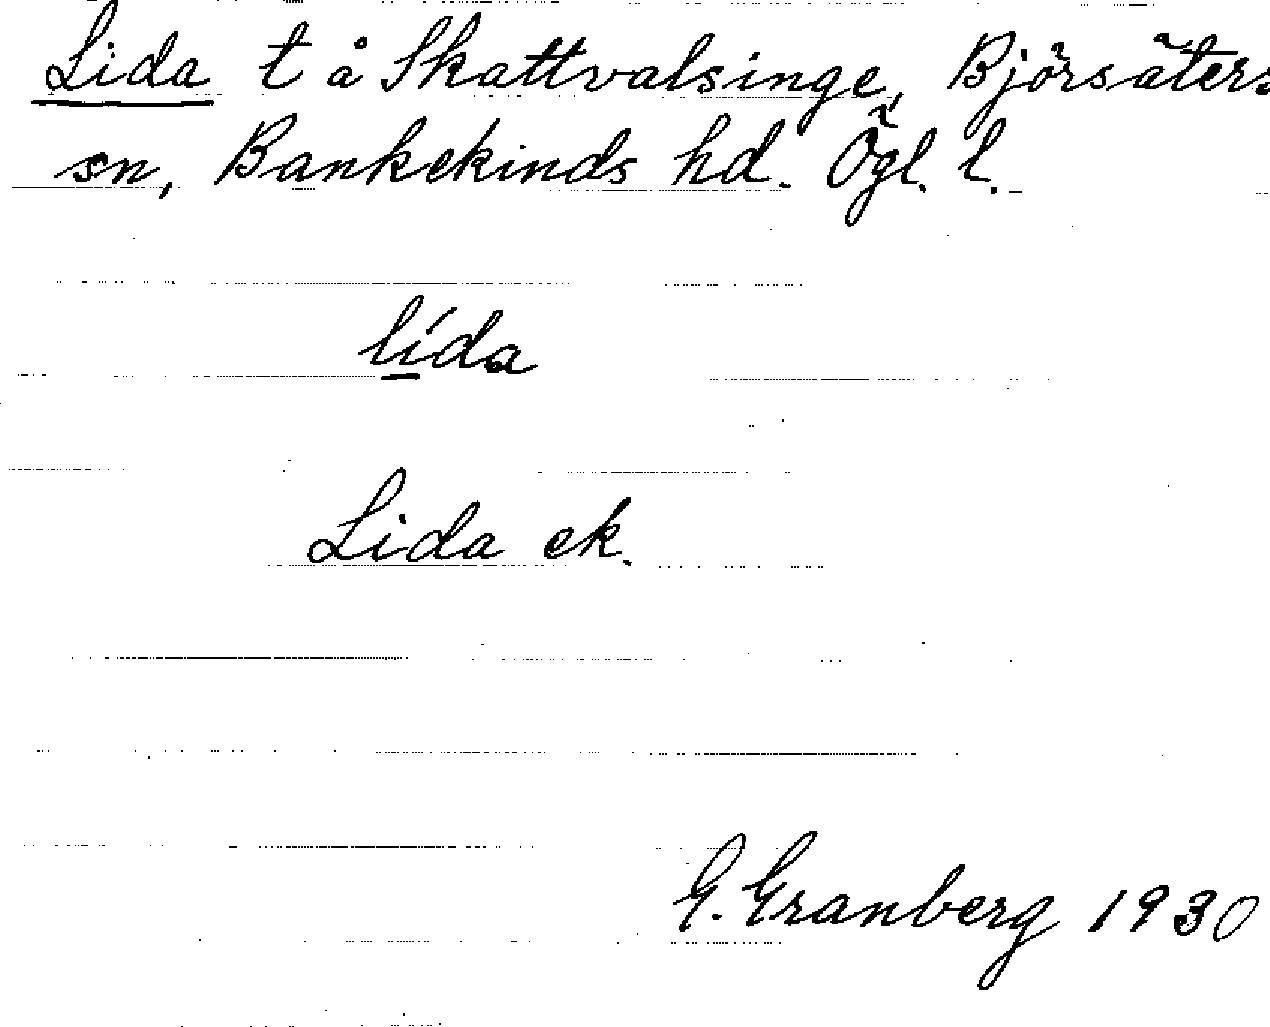 Lida t å Skattvalsinge, Björsäters
sn, Bankekinds hd. Ögl. l.
lída
Lida ek.
G. Granberg 1930